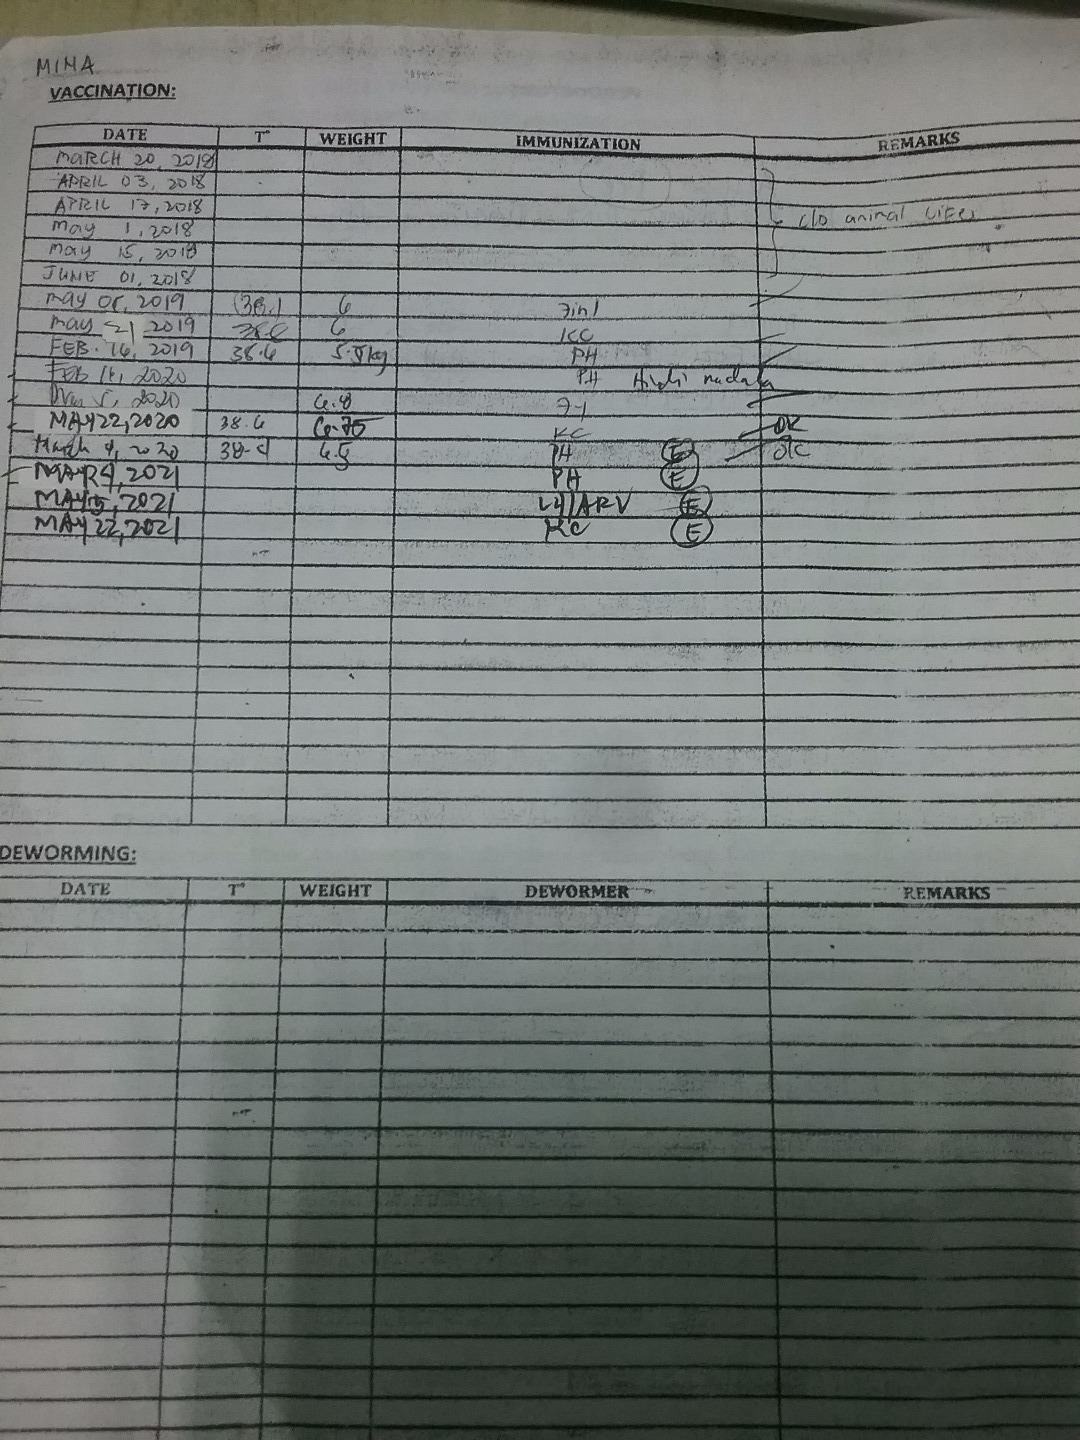 MIMA
VACCINATION:
DATE T° WEIGHT IMMUNIZATION REMARKS
MARCH 20, 2018
APRIL 03, 2018
APRIL 17, 2018
May 1, 2018
May 15, 2018
JUNE 01, 2018
c/o animal
May 2019 (38.1) 6 7in1
May 21 2019 6 KCC
FEB. 16, 2019 38.6 PH
FEB 14, 2020 PH Hindi
2020
MAY 22, 2020 38.6 6.75 KC OK
March 4, 2020 38.4 6.5 PH E OK
MAR 4, 2021 PH E
MAY 5, 2021 E
MAY 22, 2021 KC E
DEWORMING:
DATE T° WEIGHT DEWORMER REMARKS